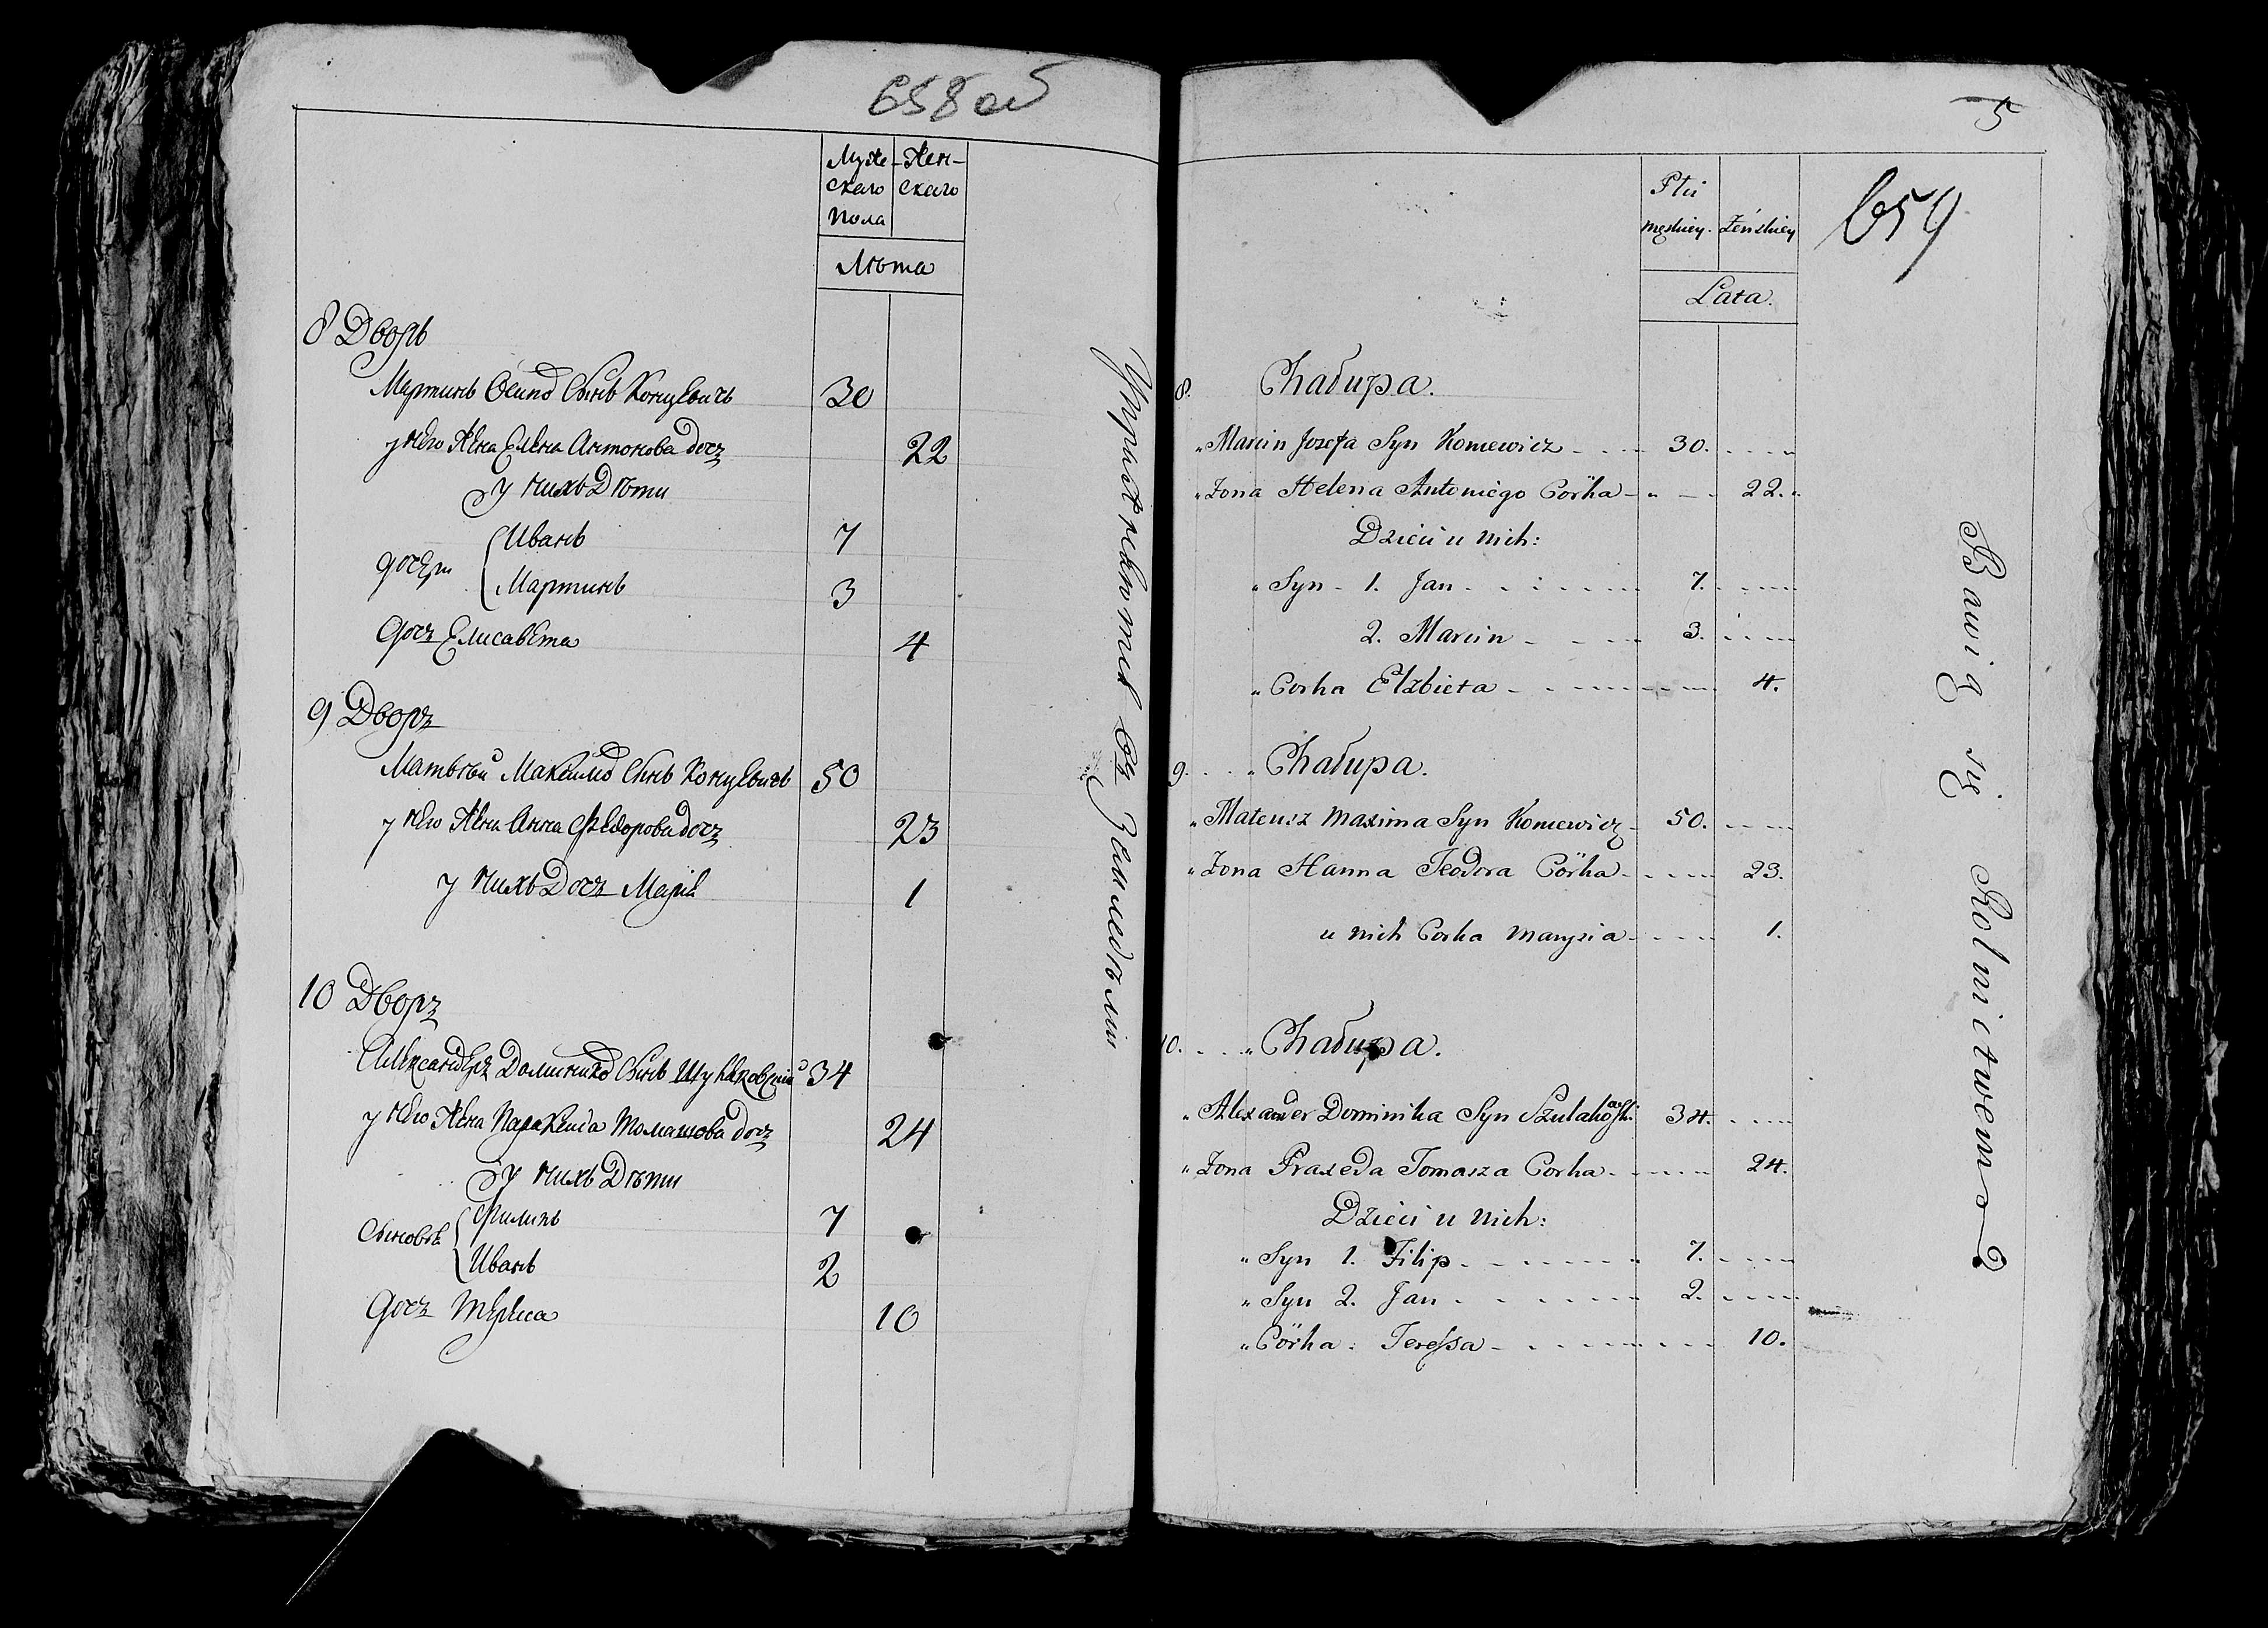 658 об
Муже-
скаго
пола
Жен-
скаго
Лѣта
8 Дворъ
Мартинъ Осипо Сынъ Концевичъ 30
у него Жена Елена Антонова дочь 22
у нихъ Дѣти
Иванъ 7
Мартинъ 3
дочь Елисавета 4
9 Дворъ
Матвѣй Максимо Сынъ Концевичъ 50
у него Жена Анна Федорова дочь 23
у нихъ Дочь Марiя 1
10 Дворъ
Александеръ Доминико Сынъ 34
у него Жена Параксида Томашова дочь 24
у нихъ Дѣти
Сыновья
Филипъ 7
Иванъ 2
дочь Тереса 10
Упражняются въ Земледѣлiи
5
659
Płci
męskiey
Żeńskiey
Lata.
8. Chałupa.
„ Marcin Jozefa Syn Koncewicz 30.
„ Żona Helena Antoniego Córka 22.
Dzieci u nich:
„ Syn 1. Jan 7.
2. Marcin 3.
„ Corka Elzbieta 4.
9. „ Chałupa.
„ Mateusz Maxima Syn Koncewicz 50.
„ Żona Hanna Teodora Córka 23.
u nich Corka Marysia 1.
10. „ Chałupa.
„ Alexander Dominika Syn 34.
„ Żona Praxeda Tomasza Corka 24.
Dzieci u nich:
„ Syn 1. Filip 7.
„ Syn 2. Jan 2.
„ Córka: Teressa 10.
Bawią się Rolnictwem